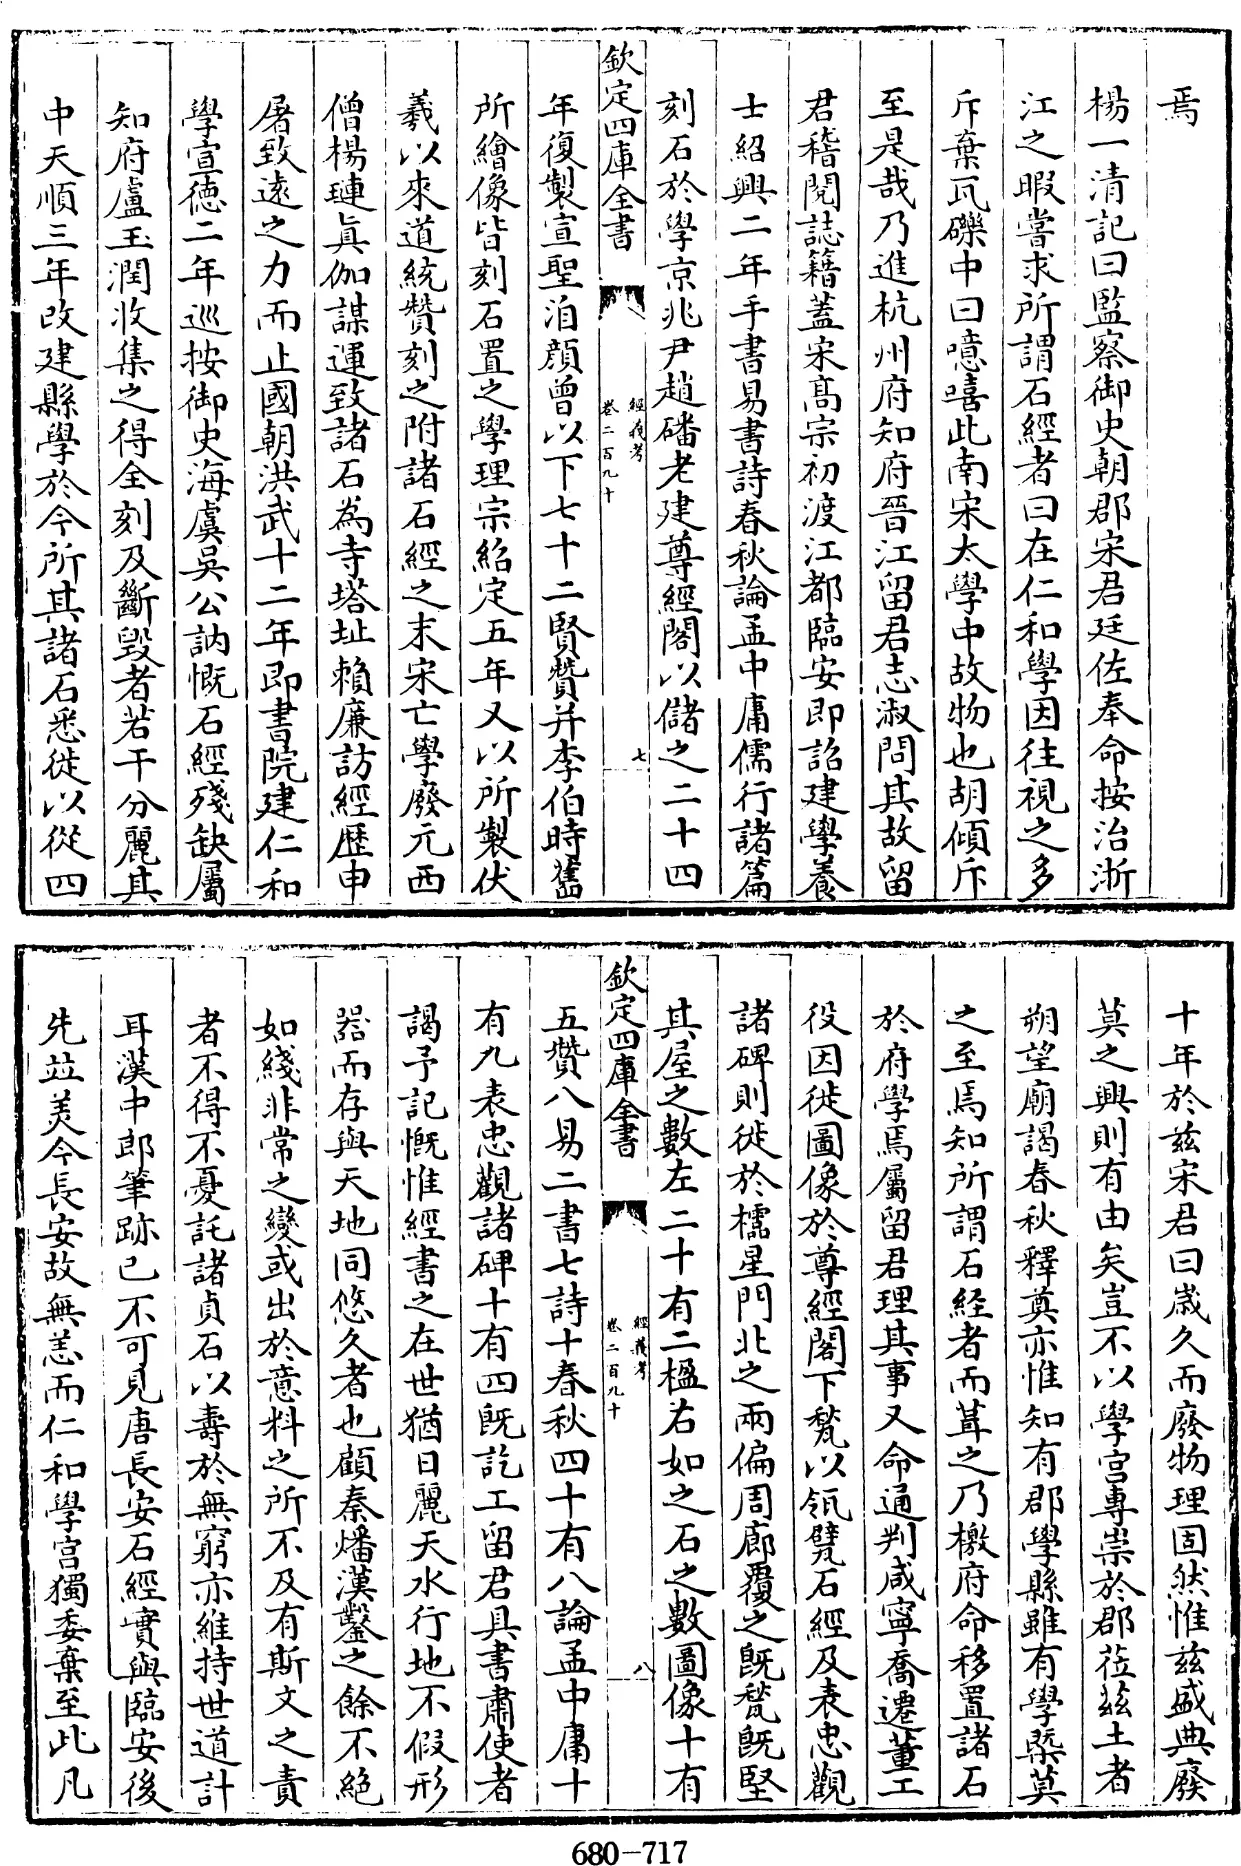 焉
楊一清記曰監察御史朝郡宋君廷佐奉命按治浙
江之暇嘗求所謂石經者曰在仁和學因往視之多
斥棄瓦礫中曰噫嘻此南宋太學中故物也胡傾斥
至是哉乃進杭州府知府晉江留君志淑問其故留
君稽閱誌籍蓋宋髙宗初渡江都臨安即詔建學養
士紹興二年手書易書詩春秋論孟中庸儒行諸篇
刻石於學京兆尹趙磻老建尊經閣以儲之二十四
欽定四庫全書
經義考
卷二百九十
七
年復製宣聖洎顔曾以下七十二賢贊并李伯時舊
所繪像皆刻石置之學理宗紹定五年又以所製伏
羲以來道統贊刻之附諸石經之末宋亡學廢元西
僧楊璉真伽謀運致諸石為寺塔址賴廉訪經歴申
屠致遠之力而止國朝洪武十二年即書院建仁和
學宣徳二年巡按御史海虞吳公訥慨石經殘缺屬
知府盧玉潤收集之得全刻及斷毀者若干分麗其
中天順三年改建縣學於今所其諸石悉徙以從四
十年於兹宋君曰嵗久而廢物理固然惟兹盛典廢
莫之興則有由矣豈不以學宫專崇於郡蒞兹土者
朔望廟謁春秋釋奠亦惟知有郡學縣雖有學槩莫
之至焉知所謂石經者而葺之乃檄府命移置諸石
於府學焉屬留君理其事又命通判咸寧喬遷董工
役因徙圖像於尊經閣下甃以瓴甓石經及表忠觀
諸碑則徙於櫺星門北之兩偏周廊覆之既甃既堅
其屋之數左二十有二楹右如之石之數圖像十有
欽定四庫全書
經義考
卷二百九十
八
五贊八易二書七詩十春秋四十有八論孟中庸十
有九表忠觀諸碑十有四既訖工留君具書肅使者
謁予記慨惟經書之在世猶日麗天水行地不假形
器而存與天地同悠久者也顧秦燔漢鑿之餘不絶
如綫非常之變或出於意料之所不及有斯文之責
者不得不憂託諸貞石以壽於無窮亦維持世道計
耳漢中郎筆跡已不可見唐長安石經實與臨安後
先竝美今長安故無恙而仁和學宫獨委棄至此凡
680-717